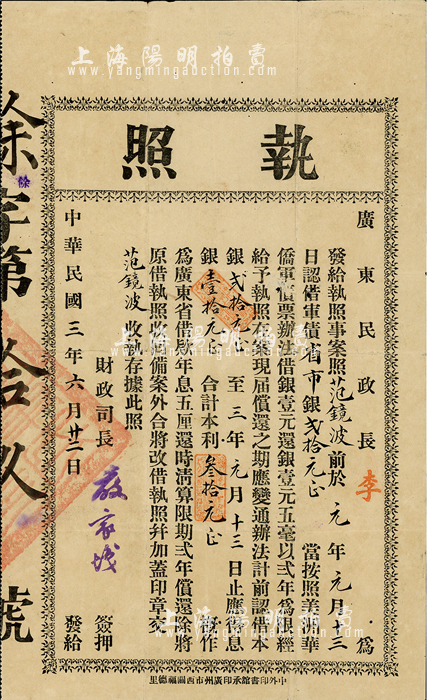 上海陽明拍賣
www.yangmingauction.com
執照
廣東民政長 李 為
發給執照事案照范鏡波前於元年元月十三
日認借軍債省市銀弍拾元正 當按照美洲華
僑軍債票辦法借銀壹元還銀壹元五毫以弍年為限經
給予執照在案現届償還之期應變通辦法計前認借本
銀弍拾元正 至三年元月十三日止應得息
銀壹拾元正 合計本利叁拾元正 擬作
為廣東省借欵年息五厘還時淸算限期弍年償還除將
原借執照收回備案外合將改借執照幷加蓋印章交
范鏡波收執存據此照
財政司長 嚴家熾 簽押
中華民國三年六月廿二日 發給
餘字第拾玖號
餘
中外印書館承印廣州市西關福德里
上海陽明拍賣
www.yangmingauction.com